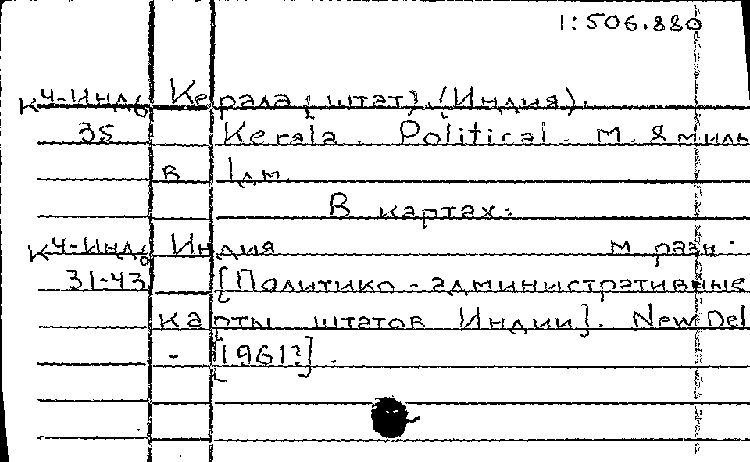 1:506.880
К4-Инд Керала (штат) (Индия).
35 Kerala. Political. М. 8 миль
в 1 дм.
В картах:
К4-Инд Индия м. разн.
31-43 [Политико-административные
карты штатов Индии]. New Del
- [1961?].